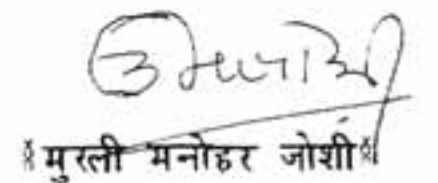 मुरली मनोहर जोशी